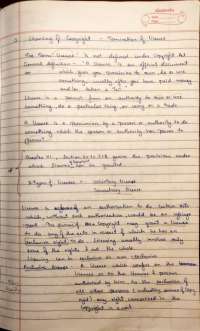 Licensing of Copyright - Termination of License
The Term 'License' is not defined under Copyright Act
General definition - "A license is an official document
which gives you permission to own, do or use
something, usually after you have paid money
and/or taken a Test"
License is a permit from an authority to own or use
something, do a particular thing, or carry on a trade
A license is a permission by a person or authority to do
something which the person or authority has power to
Chapter VI, Section 30 to 32B governs the provisions under
which licenses can be granted
2 Types of Licenses - Voluntary License
Compulsory License
License is an authorisation to do certain acts
which, without such authorisation would be an infringe-
ment. The owner of the Copyright may grant a license
to do any of the acts in respect of which he has an
exclusive right to do. Licensing usually involves only
some of the rights & not the whole.
Licensing can be exclusive or non-exclusive
Exclusive License - A license which confers on the
licensee or to the licensee & persons
authorised by him, to the exclusion of
all other persons (including owner of copy-
right) any right comprised in the
copyright in a work